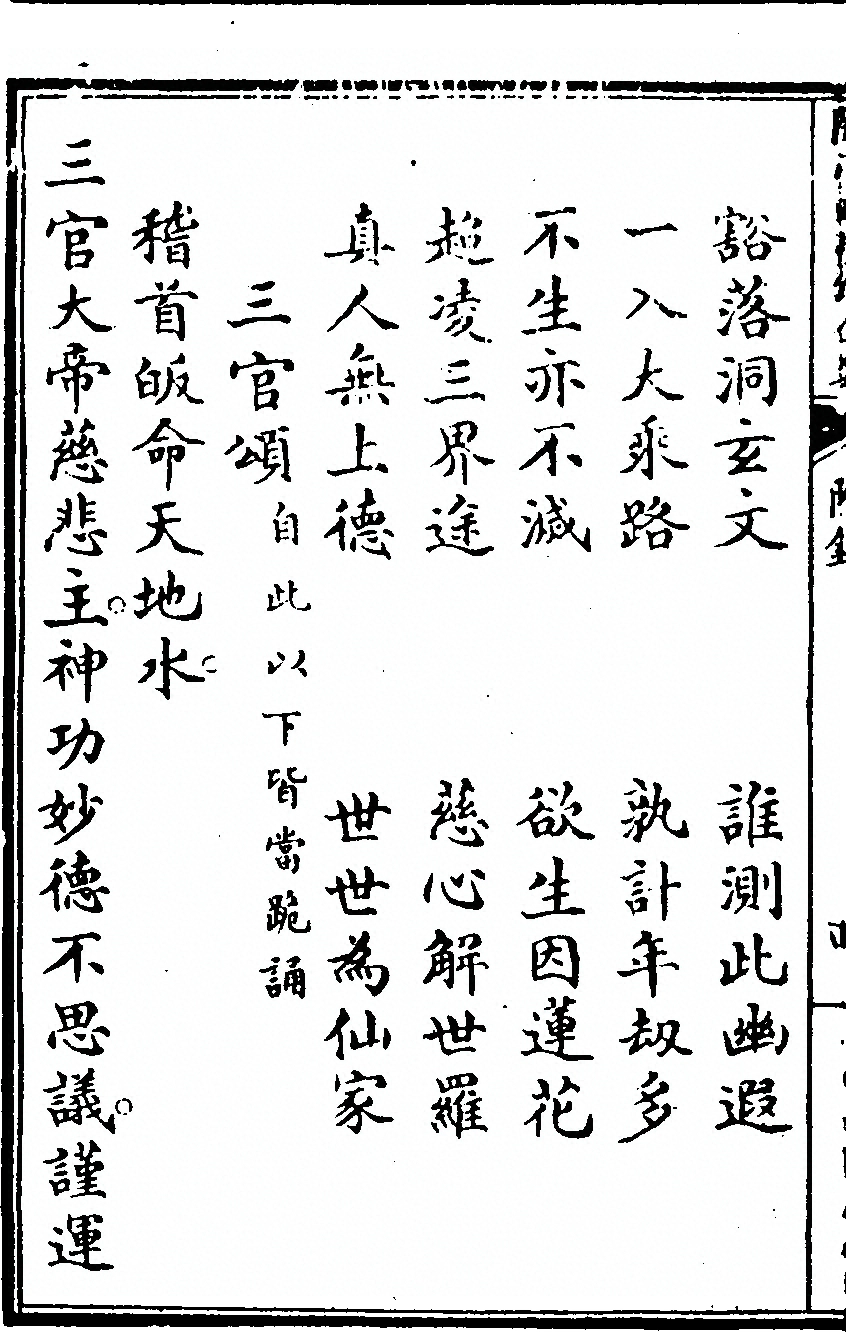 豁落洞玄文　誰測此幽遐
一入大乘路　孰計年劫多
不生亦不滅　欲生因蓮花
超凌三界途　慈心解世羅
真人無上德　世世為仙家
三官頌　自此以下皆當跪誦
稽首皈命天地水。
三官大帝慈悲主。神功妙德不思議。謹運